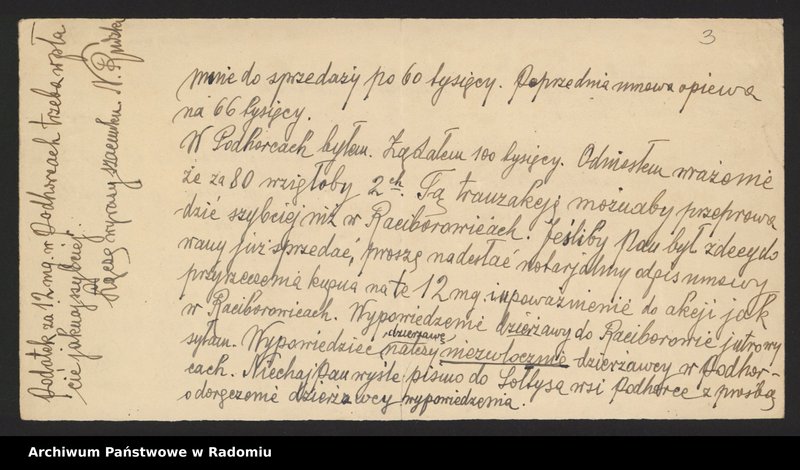 3
mnie do sprzedaży po 60 tysięcy. Poprzednia umowa opiewa
na 66 tysięcy.
W Podhorcach byłem. Żądałem 100 tysięcy. Odniosłem wrażenie
że za 80 wzięłoby 2ch. Tą tranzakcję możnaby przeprowa
dzić szybciej niż w Raciborowicach. Jeśliby Pan był zdecydo
wany już sprzedać, proszę nadesłać notarjalny odpis umowy
przyrzeczenia kupna na te 12 mg. i upoważnienie do akcji jak
w Raciborowicach. Wypowiedzenie dzierżawy do Raciborowic jutro wy
syłam. Wypowiedzieć dzierżawę należy niezwłocznie dzierżawcy w Podhor-
cach. Niechaj Pan wyśle pismo do Sołtysa wsi Podhorce z prośbą
o doręczenie dzierżawcy wypowiedzenia.
Podatek za 12 mg. w Podhorcach trzeba wpła
cić jaknajszybciej.
Łączę wyrazy szacunku. N.
Archiwum Państwowe w Radomiu